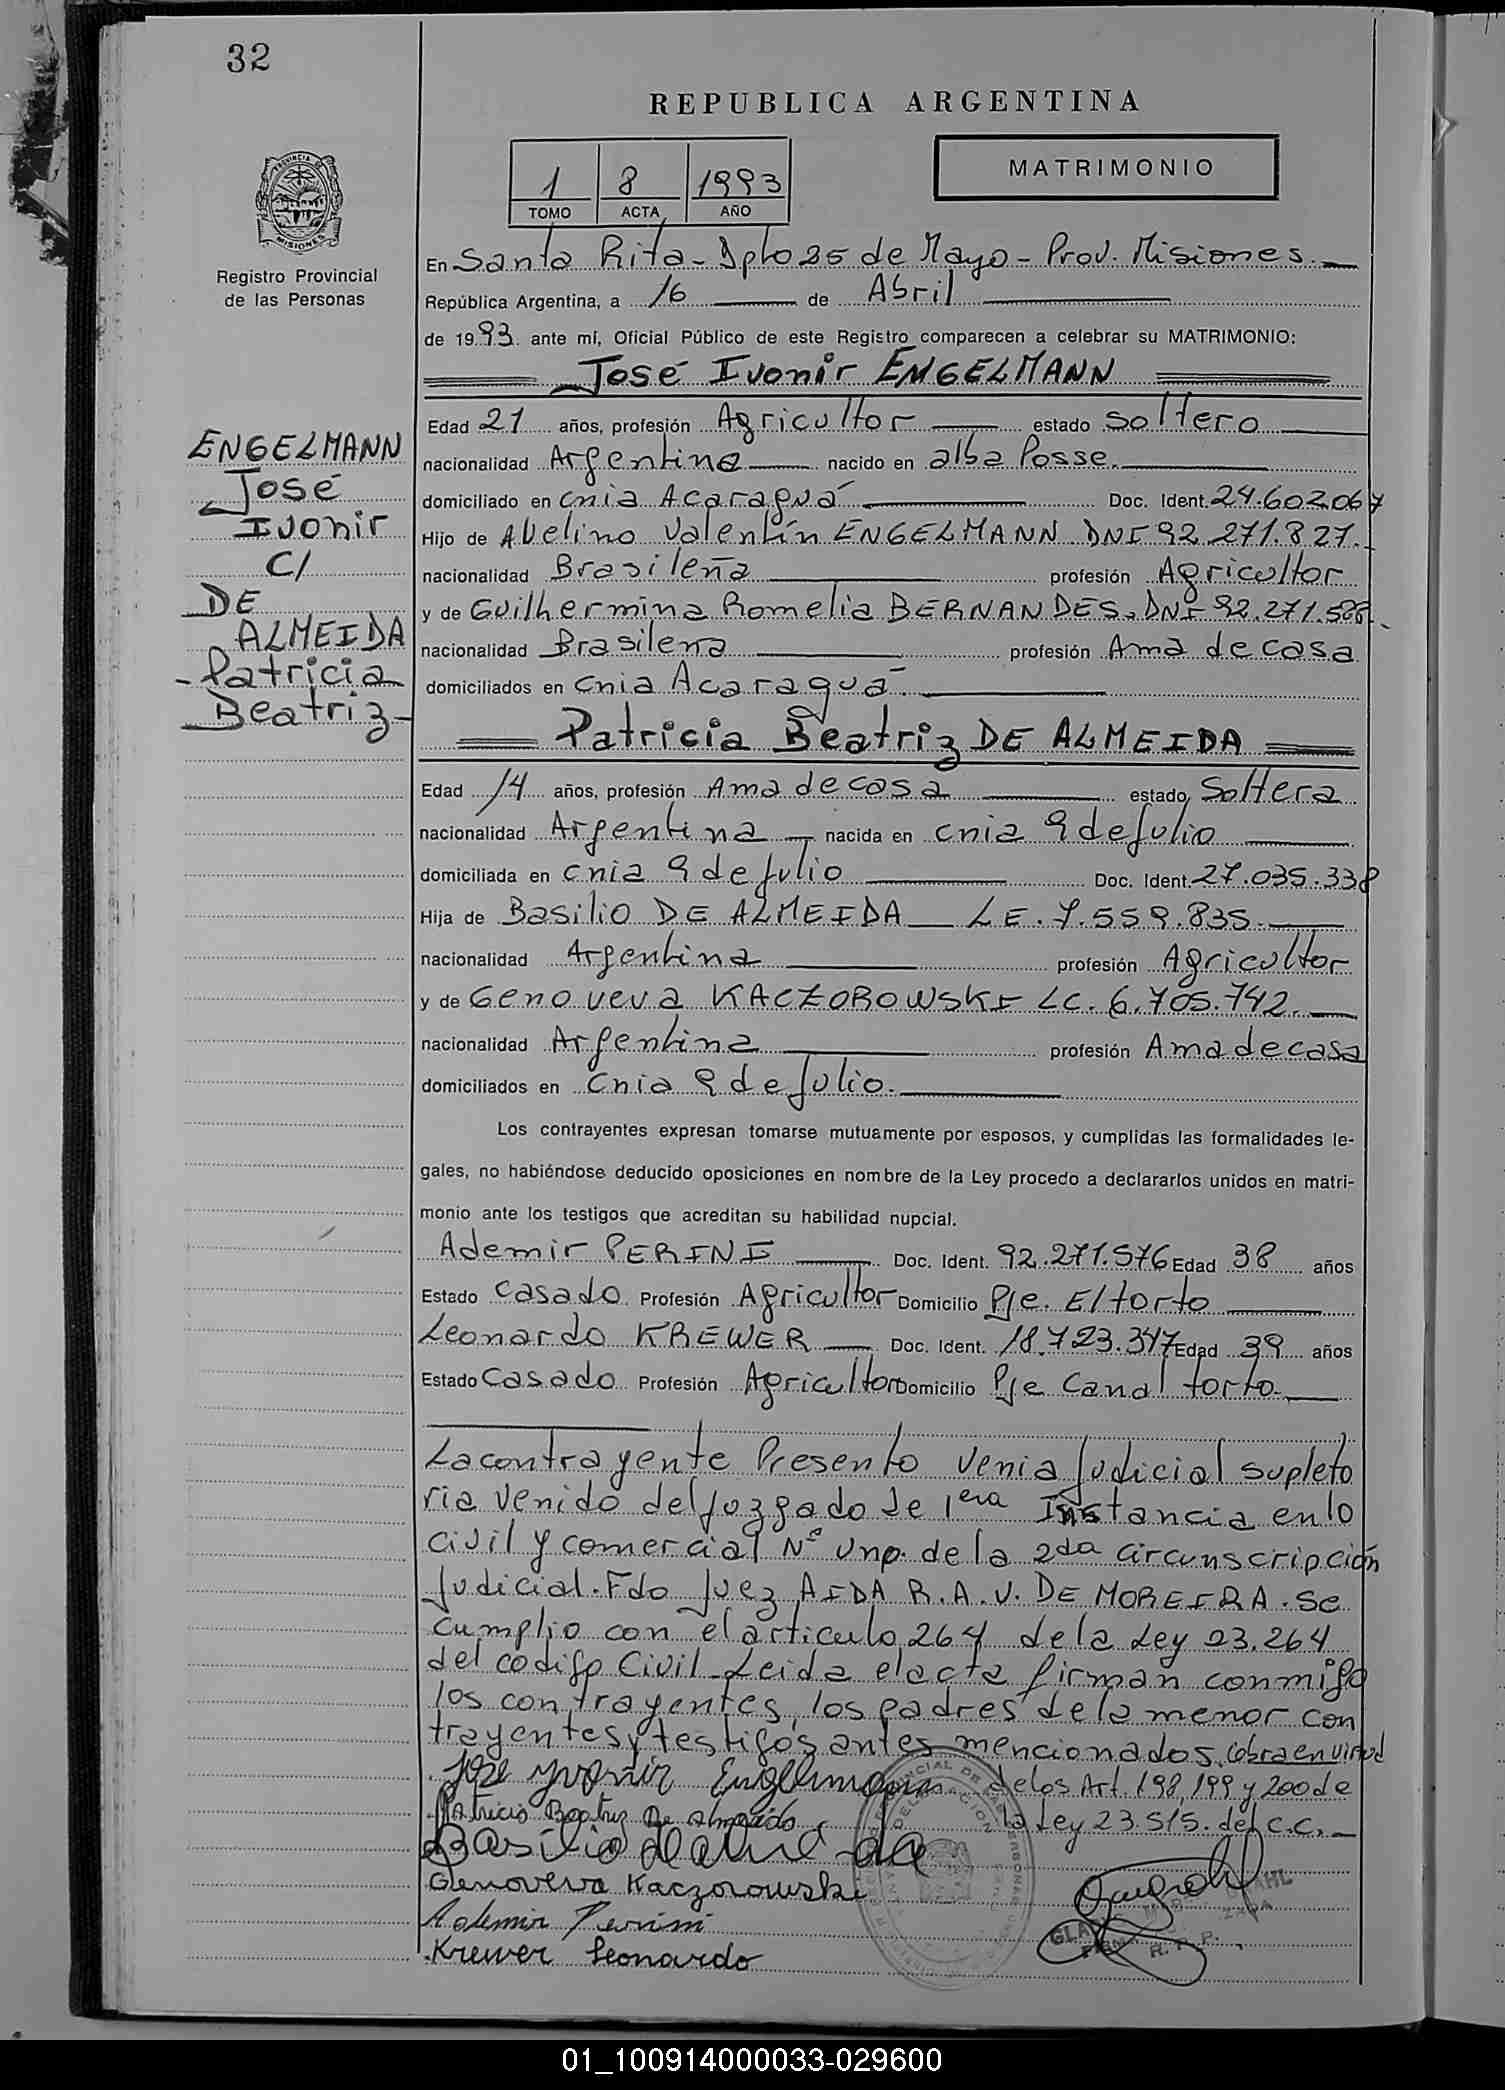 32
REPUBLICA ARGENTINA
MATRIMONIO
1 8 1993
TOMO ACTA AÑO
PROVINCIA DE MISIONES
Registro Provincial
de las Personas
En Santa Rita - Dpto 25 de Mayo - Prov. Misiones.
República Argentina, a 16 de Abril
de 1993. ante mí, Oficial Público de este Registro comparecen a celebrar su MATRIMONIO:
José Ivonir ENGELMANN
Edad 21 años, profesión Agricultor estado soltero
nacionalidad Argentina nacido en alba Posse.
domiciliado en Cnia Acaraguá Doc. Ident. 24.602.067
Hijo de Avelino Valentín ENGELMANN DNI 92.271.827.
nacionalidad Brasileña profesión Agricultor
y de Guilhermina Romelia BERNANDES. DNI 92.271.586.
nacionalidad Brasilera profesión Ama de casa
domiciliados en Cnia Acaraguá.
ENGELMANN
José
Ivonir
C/
DE
ALMEIDA
- Patricia
Beatriz -
Patricia Beatriz DE ALMEIDA
Edad 14 años, profesión Ama de casa estado Soltera
nacionalidad Argentina nacida en cnia 9 de Julio
domiciliada en cnia 9 de Julio Doc. Ident. 27.035.338
Hija de Basilio DE ALMEIDA LE. 7.559.835.
nacionalidad Argentina profesión Agricultor
y de Genoveva KACZOROWSKI LC. 6.705.742.
nacionalidad Argentina profesión Ama de casa
domiciliados en Cnia 9 de Julio.
Los contrayentes expresan tomarse mutuamente por esposos, y cumplidas las formalidades le-
gales, no habiéndose deducido oposiciones en nombre de la Ley procedo a declararlos unidos en matri-
monio ante los testigos que acreditan su habilidad nupcial.
Ademir PERINI Doc. Ident. 92.271.576 Edad 38 años
Estado Casado Profesión Agricultor Domicilio Pje. El torto
Leonardo KREWER Doc. Ident. 18.723.347 Edad 39 años
Estado Casado Profesión Agricultor Domicilio Pje Canal torto.
La contrayente Presento venia Judicial supleto
ria venido del Juzgado de 1era Instancia en lo
civil y comercial Nº Uno. de la 2da circunscripción
Judicial. Fdo Juez AIDA R.A.V. DE MOREIRA. Se
cumplio con el articulo 264 de la Ley 23.264
del codigo Civil - Leida el acta firman conmigo
los contrayentes, los padres de la menor con
trayentes y testigos antes mencionados. Cobra en virtud
de los Art. 198, 199 y 200 de
la Ley 23.515. del C.C.
Jose Yvonir Engelmann
Patricia Beatriz De Almeida
Basilio de Almeida
Genoveva Kaczorowski
Ademir Perini
Krewer Leonardo
01_100914000033-029600